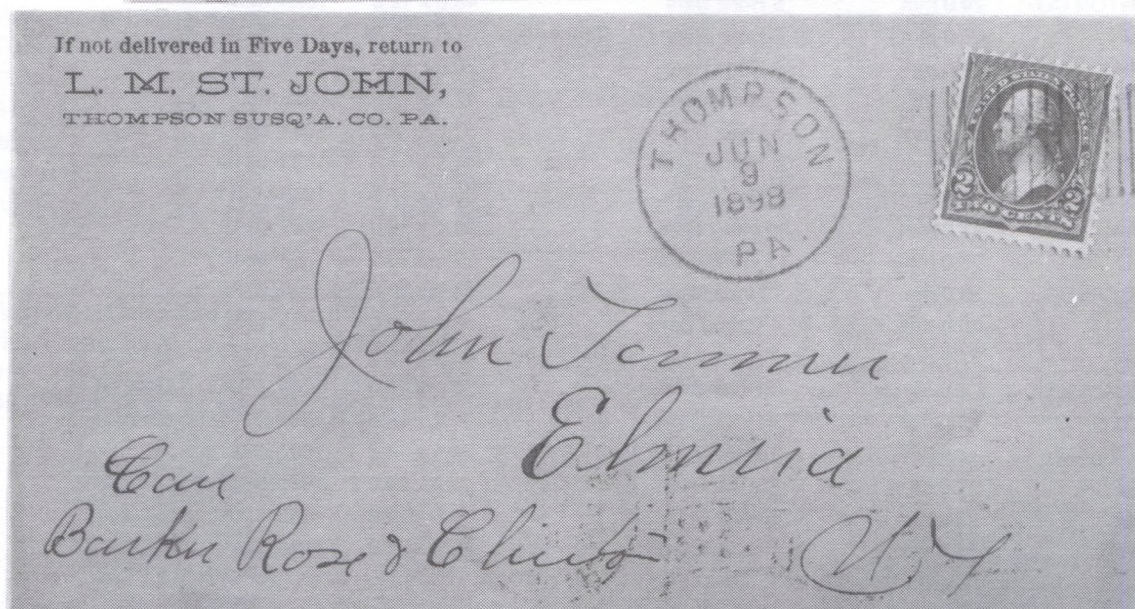 If not delivered in Five Days, return to
L. M. ST. JOHN,
THOMPSON SUSQ'A. CO. PA.
THOMPSON
JUN
9
1898
PA.
UNITED STATES
2 2
TWO CENTS
John Tanner
Elmira
Care
Barker Rose & Clinton
N Y